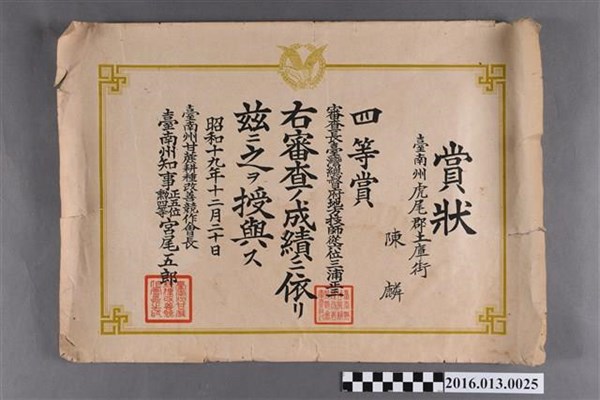 賞狀
臺南州虎尾郡土庫街
陳麟
四等賞
審查長臺灣總督府地方技師從七位三浦
右審查ノ成績ニ依リ
茲ニ之ヲ授與ス
昭和十九年十二月二十日
臺南州甘蔗耕種改善競作會長
臺南州知事正五位勲四等宮尾五郎
2016.013.0025